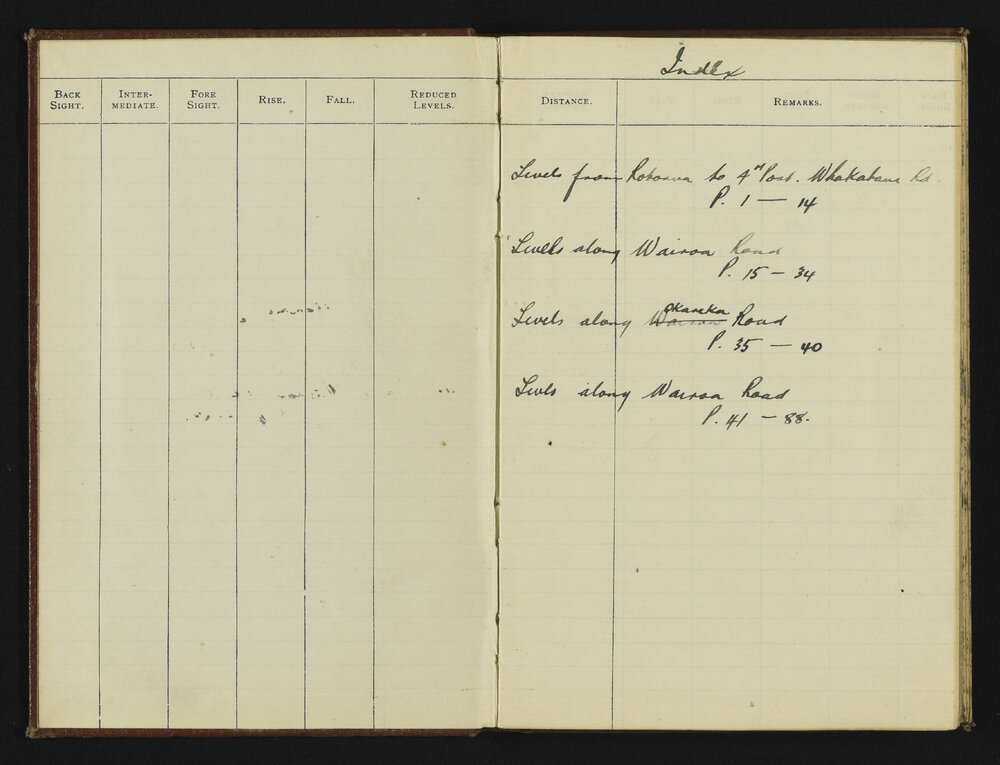 Index
BACK SIGHT. INTER-MEDIATE. FORE SIGHT. RISE. FALL. REDUCED LEVELS. DISTANCE. REMARKS.
Levels from Rotorua to 4th Post. Whakatane Rd.
P. 1 — 14
Levels along Wairoa Road
P. 15 — 34
Levels along Wairoa Okareka Road
P. 35 — 40
Levls along Wairoa Road
P. 41 — 88.